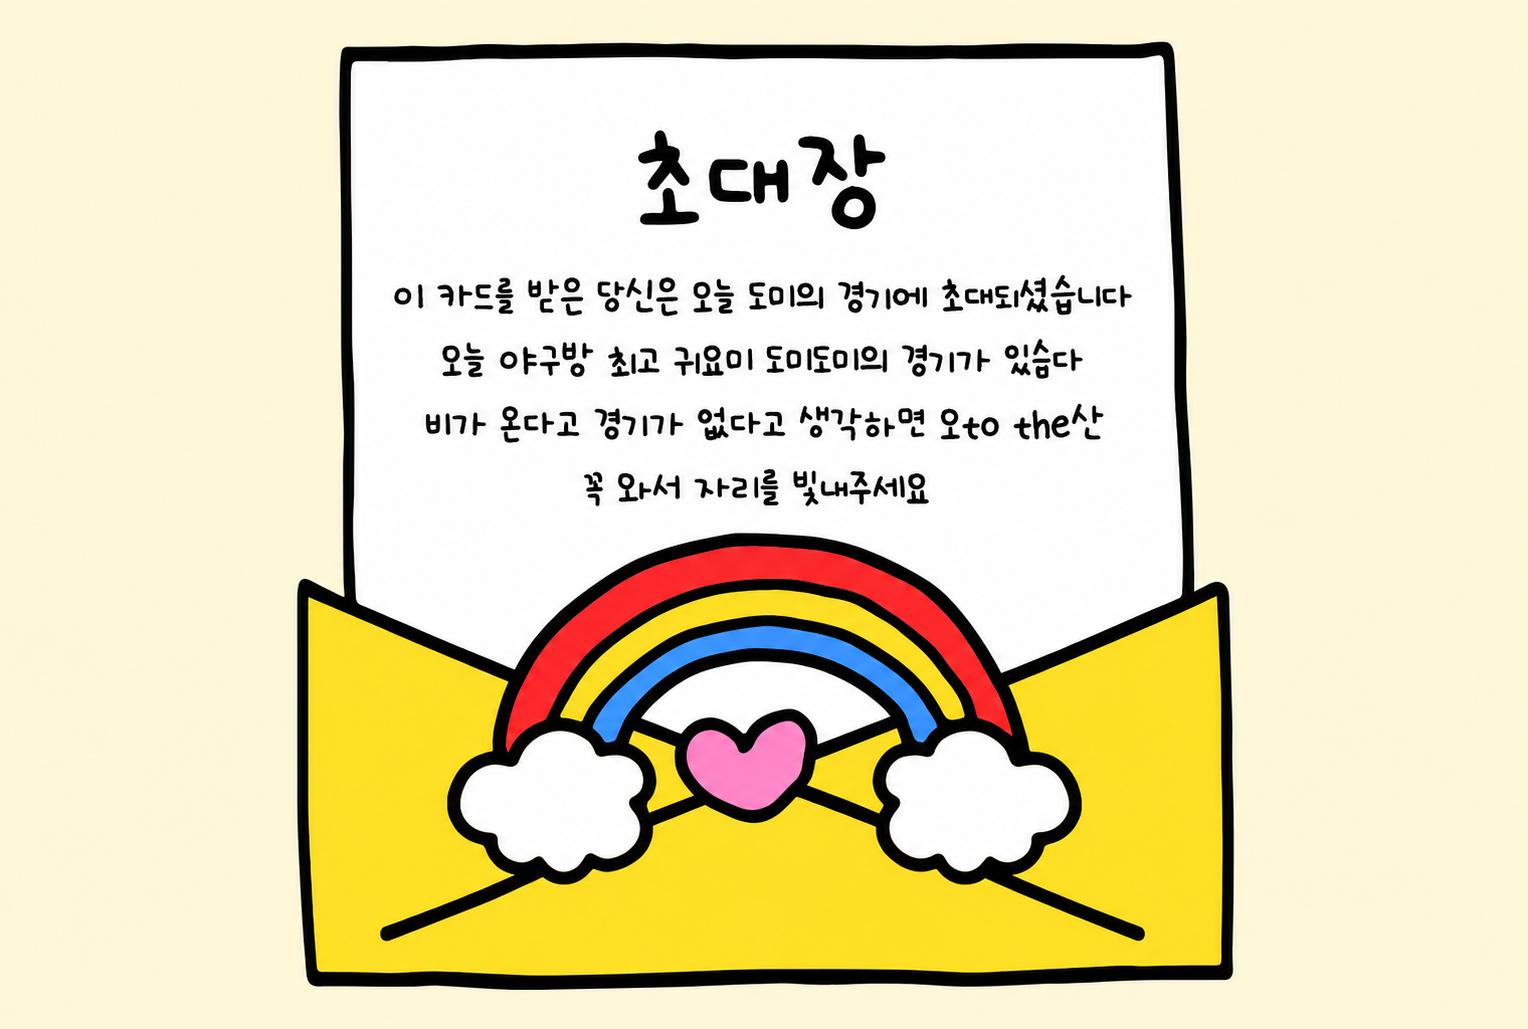 초대장
이 카드를 받은 당신은 오늘 도미의 경기에 초대되셨습니다
오늘 야구방 최고 귀요미 도미도미의 경기가 있습다
비가 온다고 경기가 없다고 생각하면 오to the산
꼭 와서 자리를 빛내주세요